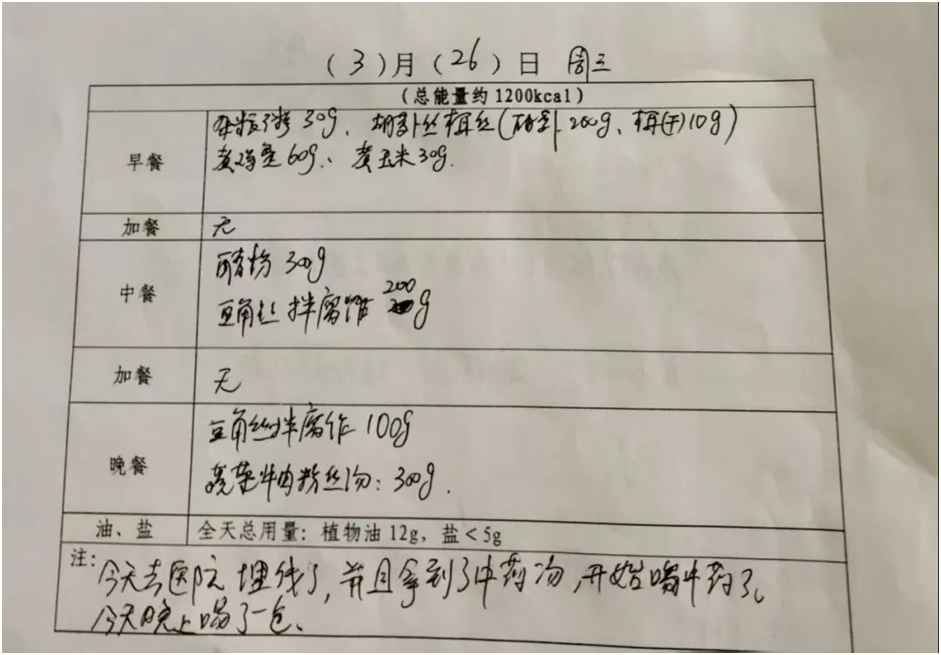 (3)月(26)日 周三
(总能量约1200kcal)
早餐
杂粮粥30g、胡萝卜丝木耳丝(胡萝卜200g、木耳(干)10g)
煮鸡蛋60g、煮玉米30g.
加餐
无
中餐
300g
豆角丝拌腐竹 200g
加餐
无
晚餐
豆角丝拌腐竹 100g
蔬菜牛肉粉丝汤:300g.
油、盐
全天总用量:植物油12g,盐<5g
注:
今天去医院埋线了,并且拿到了中药汤,开始喝中药了。
今天晚上喝了一包、